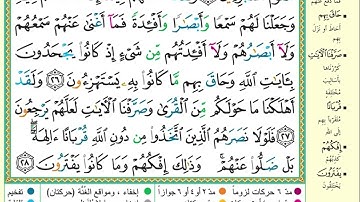 وَجَعَلْنَا لَهُمْ سَمْعًا وَأَبْصَٰرًا وَأَفْـِٔدَةً فَمَآ أَغْنَىٰ عَنْهُمْ سَمْعُهُمْ
وَلَآ أَبْصَٰرُهُمْ وَلَآ أَفْـِٔدَتُهُم مِّن شَىْءٍ إِذْ كَانُوا۟ يَجْحَدُونَ
بِـَٔايَٰتِ ٱللَّهِ وَحَاقَ بِهِم مَّا كَانُوا۟ بِهِۦ يَسْتَهْزِءُونَ ٢٦ وَلَقَدْ
أَهْلَكْنَا مَا حَوْلَكُم مِّنَ ٱلْقُرَىٰ وَصَرَّفْنَا ٱلْـَٔايَٰتِ لَعَلَّهُمْ يَرْجِعُونَ
٢٧ فَلَوْلَا نَصَرَهُمُ ٱلَّذِينَ ٱتَّخَذُوا۟ مِن دُونِ ٱللَّهِ قُرْبَانًا ءَالِهَةًۢ
بَلْ ضَلُّوا۟ عَنْهُمْ ۚ وَذَٰلِكَ إِفْكُهُمْ وَمَا كَانُوا۟ يَفْتَرُونَ ٢٨
حَاقَ بِهِم
صَرَّفْنَا الْآيَاتِ
قُرْبَانًا
إِفْكُهُمْ
يَفْتَرُونَ
مدّ ٦ حركات لزوماً مدّ ٢ أو ٤ أو ٦ جوازاً
إخفاء، ومواقع الغُنَّة (حركتان) تفخيم